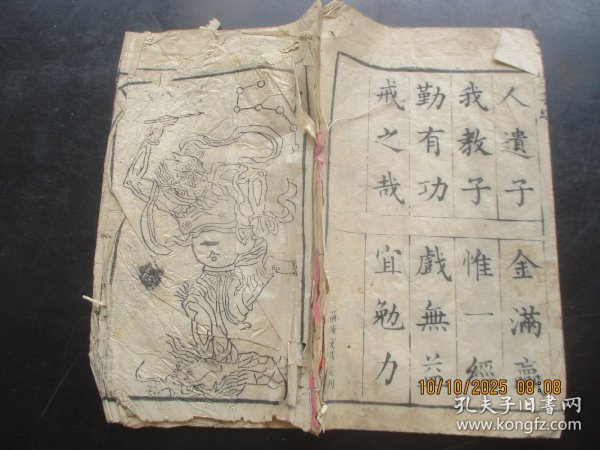 人遺子 金滿
我教子 惟一經
勤有功 戲無益
戒之哉 宜勉力
10/10/2025 08:08
孔夫子旧书网
www.kongfz.com